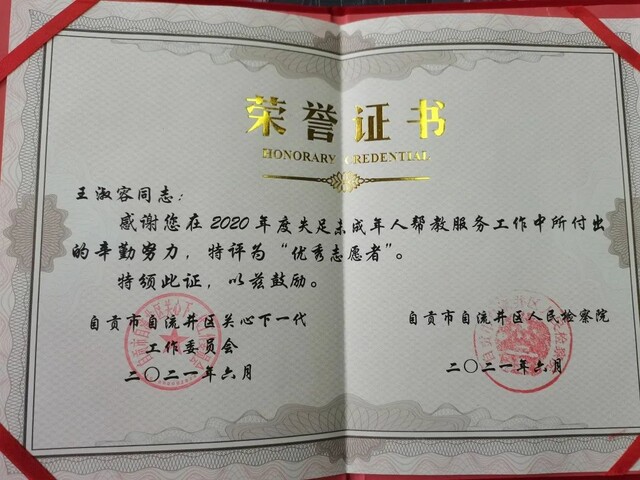 荣誉证书
HONORARY CREDENTIAL
王淑容同志：
感谢您在2020年度失足未成年人帮教服务工作中所付出
的辛勤努力，特评为“优秀志愿者”。
特颁此证，以兹鼓励。
自贡市自流井区关心下一代
工作委员会
二〇二一年六月
自贡市自流井区人民检察院
二〇二一年六月